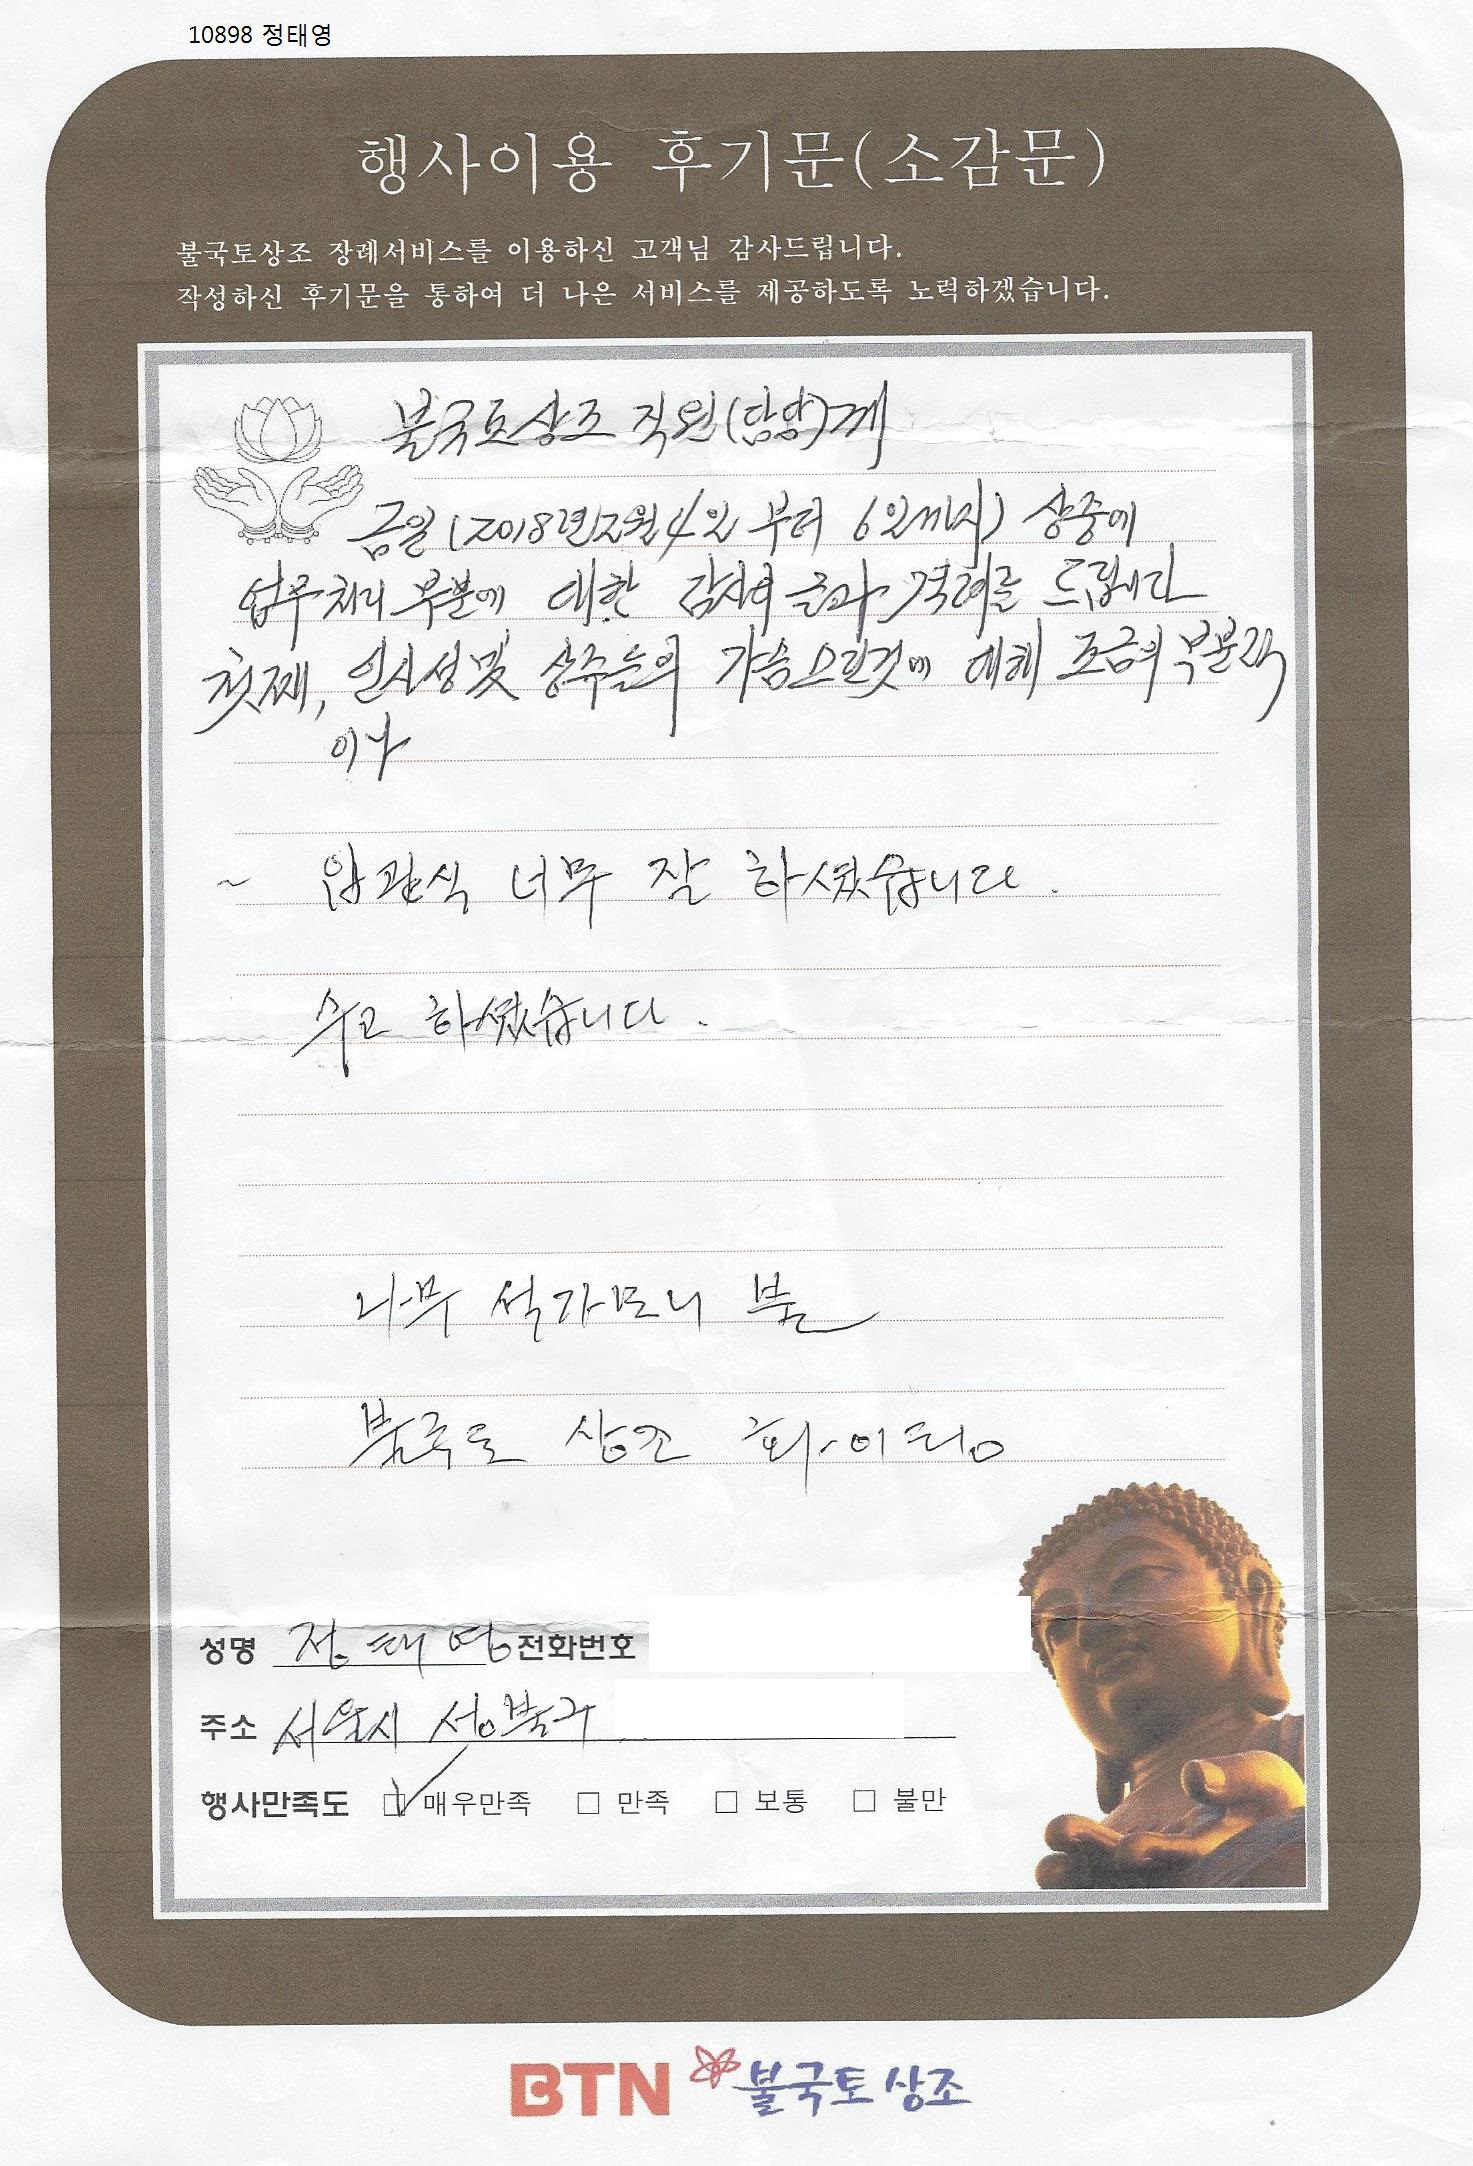 10898 정태영
행사이용 후기문(소감문)
불국토상조 장례서비스를 이용하신 고객님 감사드립니다.
작성하신 후기문을 통하여 더 나은 서비스를 제공하도록 노력하겠습니다.
불국토상조 직원(담당)께
금일(2018년12월4일 부터 6일까지) 상중에
업무처리 부분에 대한 감사의 글과 격려를 드립니다
첫째, 인사성및 상주들의 가슴스린것에 대해 조금의 부분
이나
~ 입관식 너무 잘 하셨습니다.
수고 하셨습니다.
나무 석가모니 불
불국토 상조 화이팅
성명 정태영 전화번호
주소 서울시 성북구
행사만족도 ☑ 매우만족 □ 만족 □ 보통 □ 불만
BTN 불국토상조